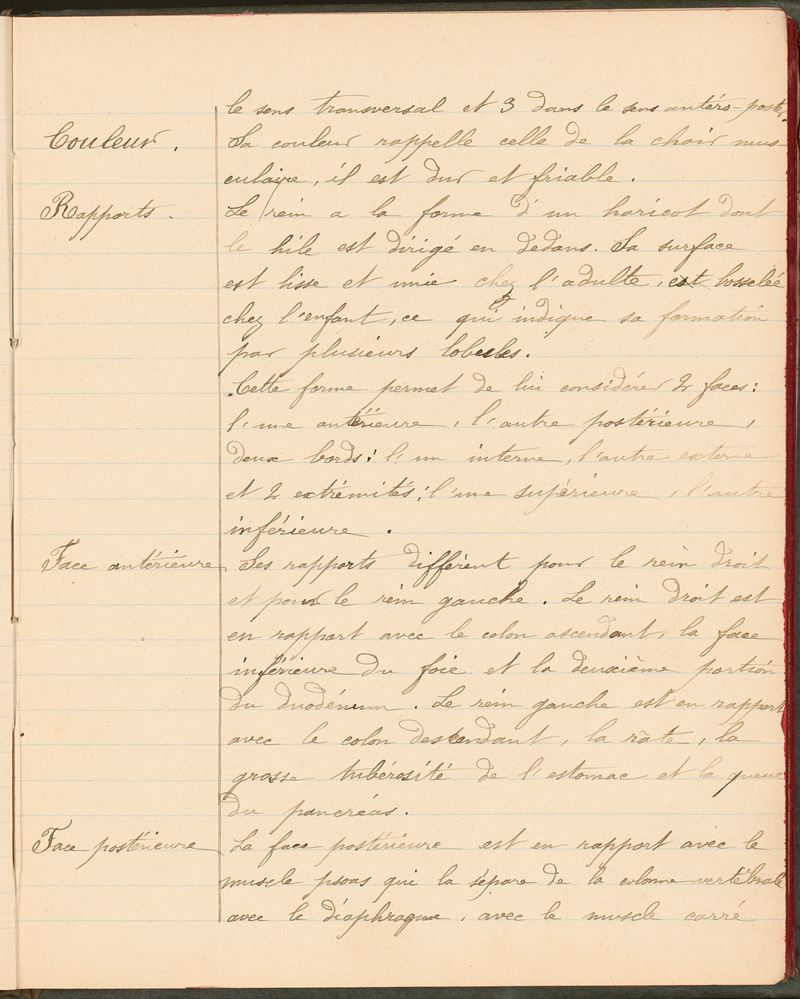 le sens transversal et 3 dans le sens antéro-post.
Couleur. Sa couleur rappelle celle de la chair mus
culaire, il est dur et friable.
Rapports. Le rein a la forme d'un haricot dont
le hile est dirigé en dedans. Sa surface
est lisse et unie chez l'adulte, est bosselée
chez l'enfant, ce qui indique sa formation
par plusieurs lobules.
Cette forme permet de lui considérer 2 faces:
l'une antérieure, l'autre postérieure,
deux bords: l'un interne, l'autre externe
et 2 extrémités; l'une supérieure, l'autre
inférieure.
Face antérieure Ses rapports diffèrent pour le rein droit
et pour le rein gauche. Le rein droit est
en rapport avec le colon ascendant, la face
inférieure du foie et la deuxième portion
du duodénum. Le rein gauche est en rapport
avec le colon descendant, la rate, la
grosse tubérosité de l'estomac et la queue
du pancréas.
Face postérieure La face postérieure est en rapport avec le
muscle psoas qui la sépare de la colonne vertébrale
avec le diaphragme, avec le muscle carré